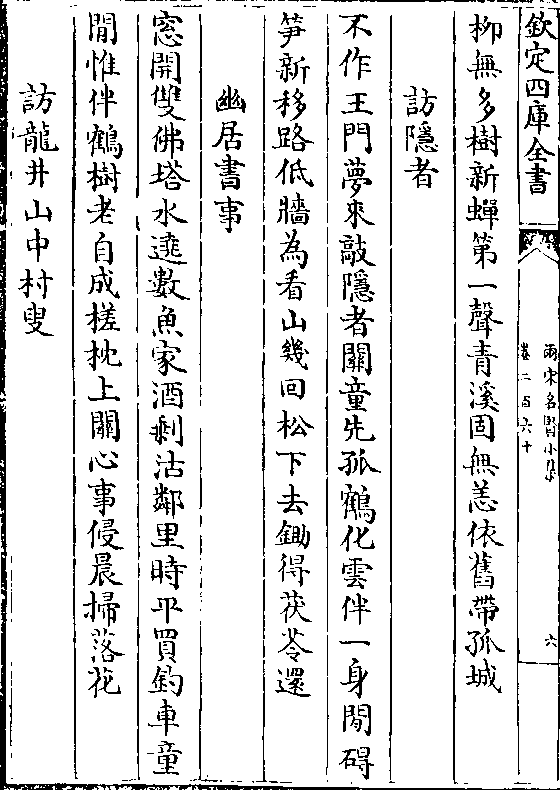 欽定四庫全書
兩宋名賢小集
卷二百六十
六
柳無多樹新蟬第一聲青溪固無恙依舊帶孤城
訪隱者
不作王門夢來敲隱者關童先孤鶴化雲伴一身閒碍
笋新移路低牆為看山幾回松下去鋤得茯苓還
幽居書事
窓開雙佛塔水遶數魚家酒剩沽鄰里時平買釣車童
閒惟伴鶴樹老自成槎枕上關心事侵晨掃落花
訪龍井山中村叟